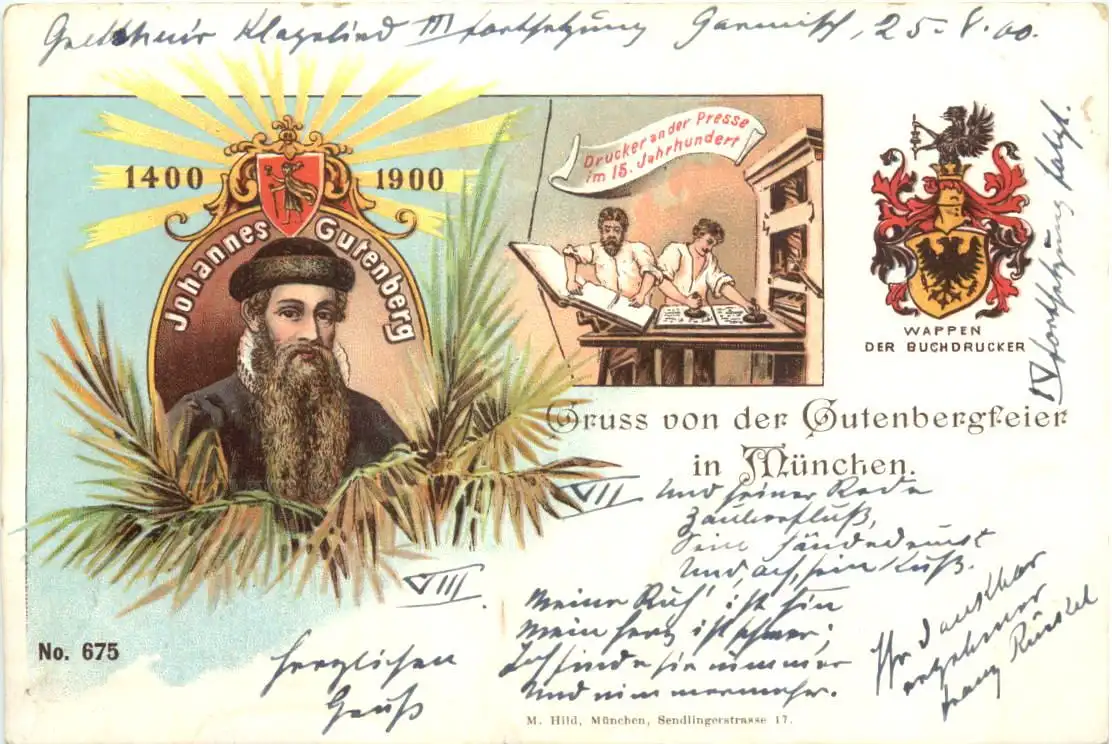 Gretchens Klagelied III Fortsetzung Garmisch, 25-8.00.
1400 1900
Johannes Gutenberg
Drucker an der Presse
im 15. Jahrhundert
WAPPEN
DER BUCHDRUCKER
IV Fortsetzung folgt.
Gruss von der Gutenbergfeier
in München.
VII Und seiner Rede
Zauberfluß,
Sein Händedruck
Und, ach, sein Kuß.
VIII.
Meine Ruh' ist hin
Mein Herz ist schwer;
Ich finde sie nimmer
Und nimmermehr.
Herzlichen
Gruß
Ihr dankbar
ergebener
Franz
No. 675
M. Hild, München, Sendlingerstrasse 17.